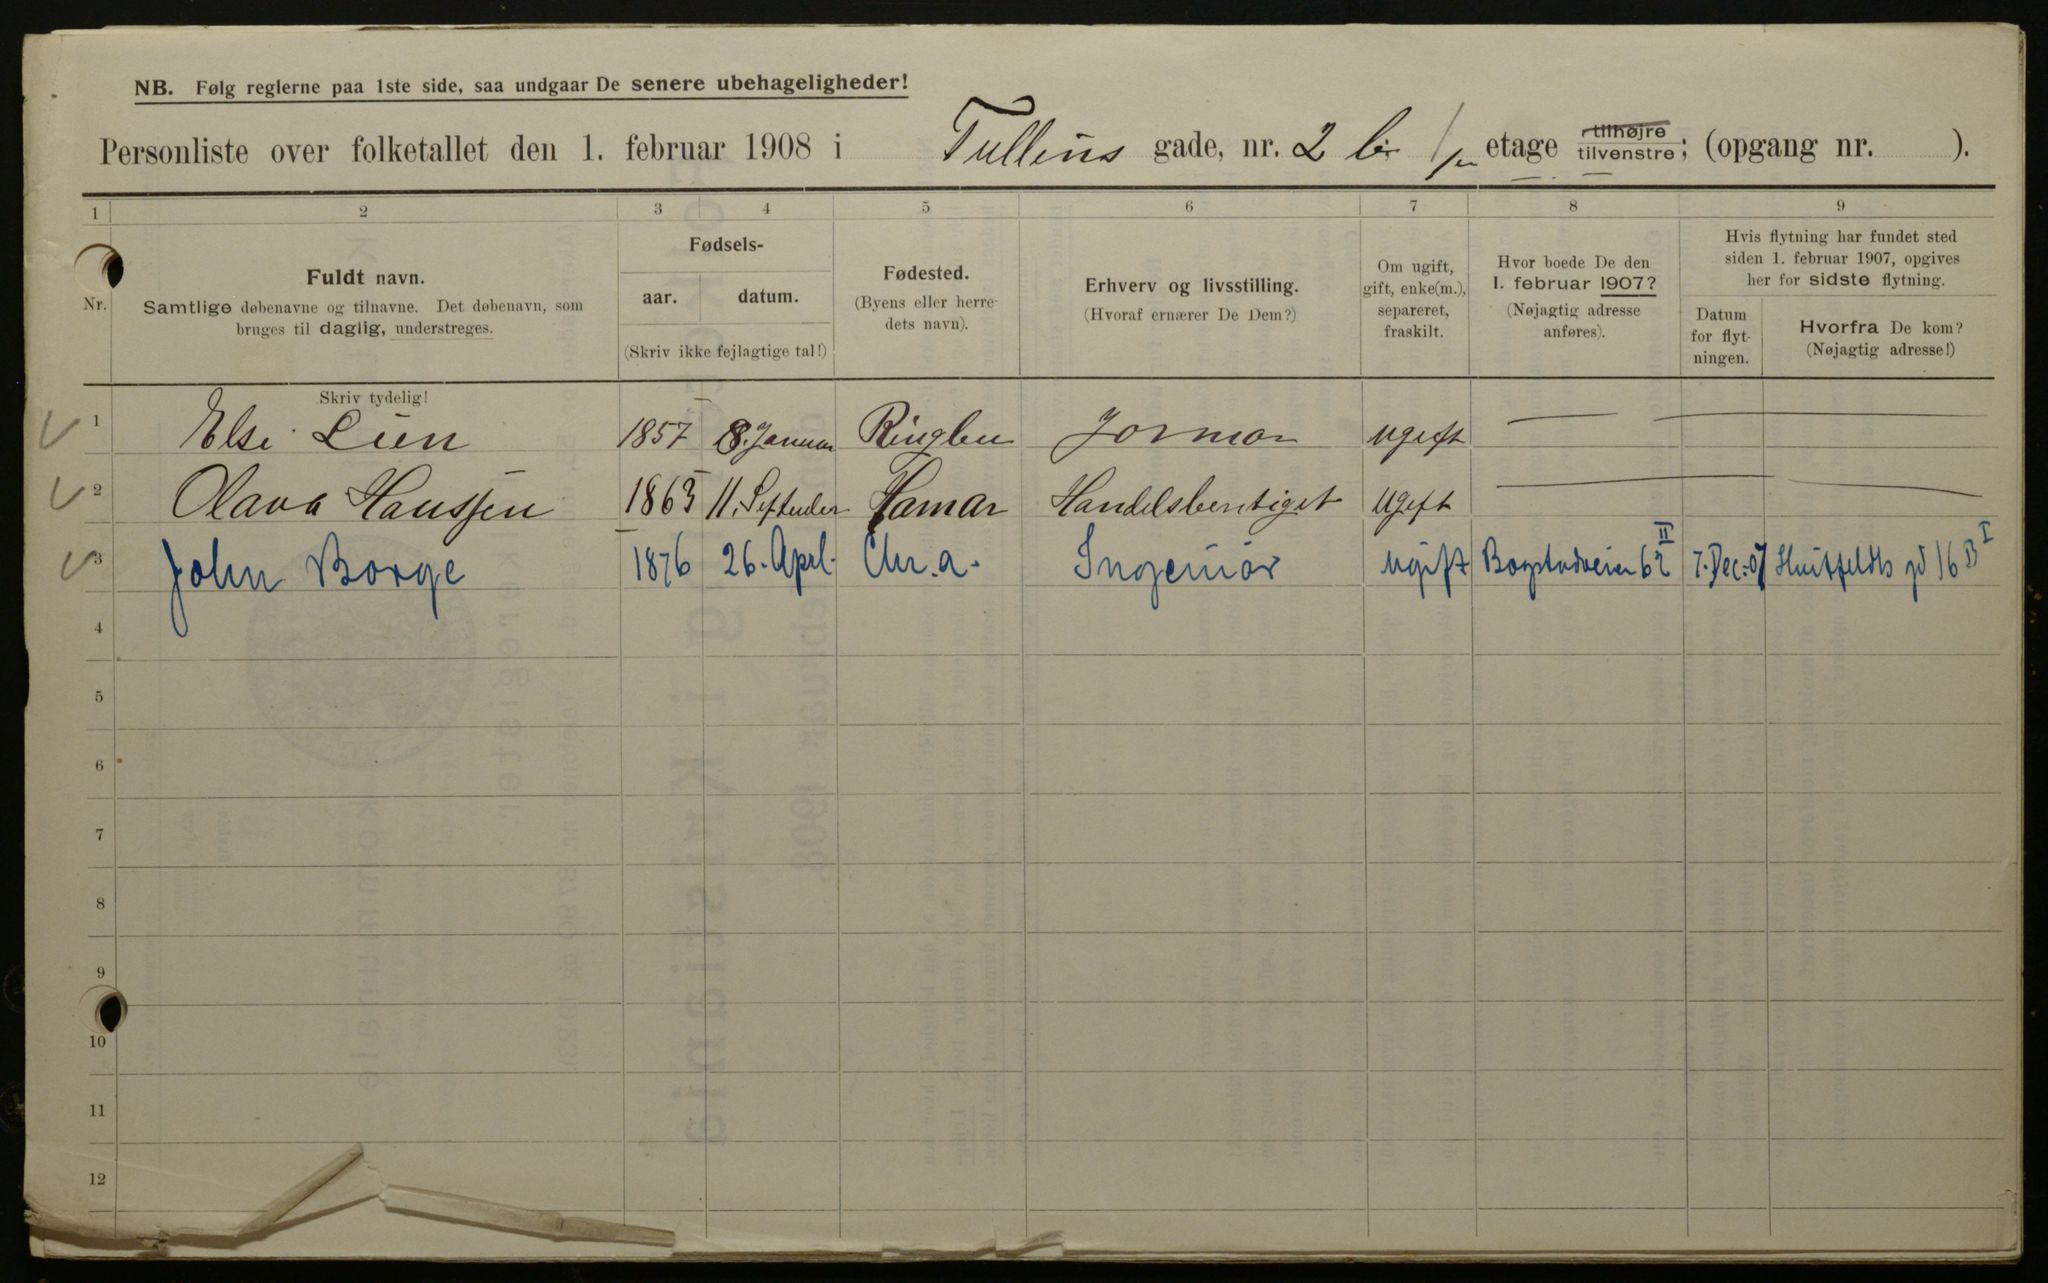 NB. Følg reglerne paa 1ste side, saa undgaar De senere ubehageligheder!
Personliste over folketallet den 1. februar 1908 i Tullins gade, nr. 2 b 1 etage tilhøjre tilvenstre; (opgang nr. ).
1 2 3 4 5 6 7 8 9
Nr.
Fuldt navn.
Samtlige døbenavne og tilnavne. Det døbenavn, som
bruges til daglig, understreges.
Fødsels-
aar. datum.
(Skriv ikke fejlagtige tal!)
Fødested.
(Byens eller herre-
dets navn).
Erhverv og livsstilling.
(Hvoraf ernærer De Dem?)
Om ugift,
gift, enke(m.),
separeret,
fraskilt.
Hvor boede De den
1. februar 1907?
(Nøjagtig adresse
anføres).
Hvis flytning har fundet sted
siden 1. februar 1907, opgives
her for sidste flytning.
Datum
for flyt-
ningen.
Hvorfra De kom?
(Nøjagtig adresse!)
Skriv tydelig!
1 Else Lien 1857 8. Januar Ringbu Jormor ugift
2 Olava Hanssen 1863 11. September Hamar Handelsberetiget ugift
3 John Borge 1876 26. April. Chr.a. Ingeniør ugift Bogstadveien 62 II 7. Dec. 07 Huitfeldts gd 16 B I
4
5
6
7
8
9
10
11
12